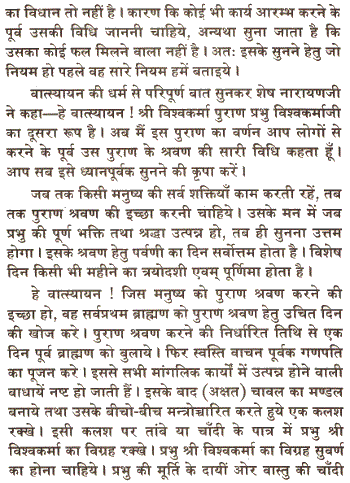 का विधान तो नहीं है। कारण कि कोई भी कार्य आरम्भ करने के
पूर्व उसकी विधि जाननी चाहिये, अन्यथा सुना जाता है कि
उसका कोई फल मिलने वाला नहीं है। अतः इसके सुनने हेतु जो
नियम हो पहले वह सारे नियम हमें बताइये।
वात्स्यायन की धर्म से परिपूर्ण वात सुनकर शेष नारायणजी
ने कहा—हे वात्स्यायन ! श्री विश्वकर्मा पुराण प्रभु विश्वकर्माजी
का दूसरा रूप है। अब मैं इस पुराण का वर्णन आप लोगों से
करने के पूर्व उस पुराण के श्रवण की सारी विधि कहता हूँ।
आप सब इसे ध्यानपूर्वक सुनने की कृपा करें।
जब तक किसी मनुष्य की सर्व शक्तियाँ काम करती रहें, तब
तक पुराण श्रवण की इच्छा करनी चाहिये। उसके मन में जब
प्रभु की पूर्ण भक्ति तथा श्रद्धा उत्पन्न हो, तब ही सुनना उत्तम
होगा। इसके श्रवण हेतु पर्वणी का दिन सर्वोत्तम होता है। विशेष
दिन किसी भी महीने का त्रयोदशी एवम् पूर्णिमा होता है।
हे वात्स्यायन ! जिस मनुष्य को पुराण श्रवण करने की
इच्छा हो, वह सर्वप्रथम ब्राह्मण को पुराण श्रवण हेतु उचित दिन
की खोज करे। पुराण श्रवण करने की निर्धारित तिथि से एक
दिन पूर्व ब्राह्मण को बुलाये। फिर स्वस्ति वाचन पूर्वक गणपति
का पूजन करे। इससे सभी मांगलिक कार्यों में उत्पन्न होने वाली
बाधायें नष्ट हो जाती हैं। इसके बाद (अक्षत) चावल का मण्डल
बनाये तथा उसके बीचो-बीच मन्त्रोच्चारित करते हुये एक कलश
रक्खे। इसी कलश पर तांबे या चाँदी के पात्र में प्रभु श्री
विश्वकर्मा का विग्रह रक्खे। प्रभु श्री विश्वकर्मा का विग्रह सुवर्ण
का होना चाहिये। प्रभु की मूर्ति के दायीं ओर वास्तु की चाँदी